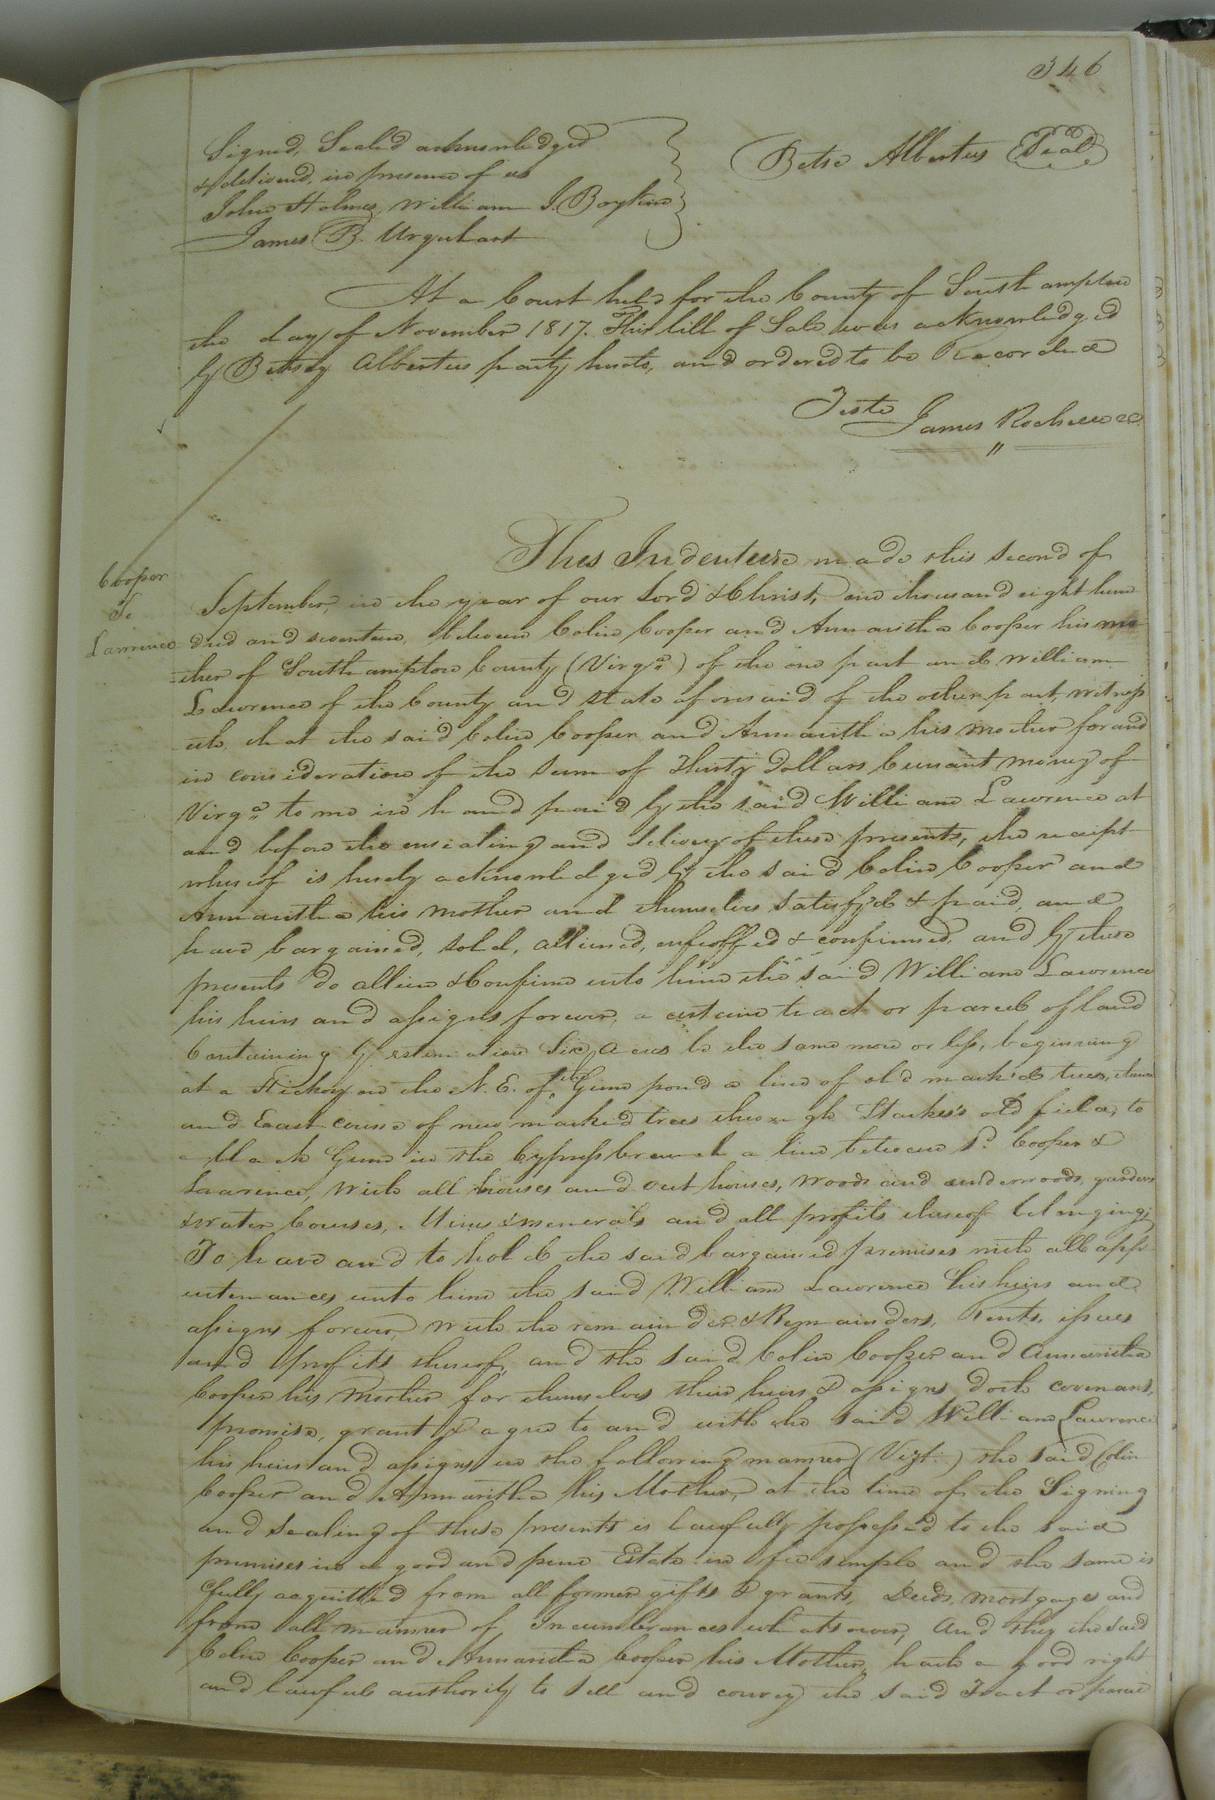 346
Signed, Sealed acknowledged
& deliverd, in presence of us
John Holmes, William J. Boykin
James B. Urquhart
Betse Albertus Seal
At a Court held for the County of Southampton
the day of November 1817. This bill of Sale was acknowledged
by Betsey Albertus party hereto, and ordered to be Recorded
Teste
James Rochelle CC
Cooper
To
Lawrence
This Indenture made this second of
September, in the year of our Lord & Christ, one thousand eight hun
dred and seventeen, between Colin Cooper and Annaritha Cooper his mo
ther of Southampton County (Virga) of the one part and William
Lawrence of the County and State aforesaid of the other part, witness
eth, that the said Colin Cooper and Annaritha his Mother for and
in consideration of the Sum of Thirty Dollars Currant money of
Virga to me in hand paid by the said William Lawrence at
and before the ensealing and delivery of these presents, the receipt
whereof is hereby acknowledged by the said Colin Cooper and
Annaritha his Mother and themselves satisfy'd & paid, and
have bargained, sold, alliened, enfeoffed & confirmed, and by these
presents do allien & Confirm unto him the said William Lawrence
his heirs and assigns forever, a certain tract or parcel of land
Containing by estimation Six Acres be the same more or less, beginning
at a Hickory on the N. E. of the Gum pond a line of old marked trees, thence
and East course of new marked trees through Starke's old field, to
a black Gum in the Cypress branch a line between sd. Cooper &
Lawrence, With all houses and out houses, woods and underwoods, gardens
& water Courses, Mines & minerals and all profits thereof belonging,
To have and to hold the said bargained premises with all app
urtenances unto him the said William Lawrence his heirs and
assigns forever, With the remainder & Remainders, Rents, issues
and profits thereof, and the said Colin Cooper and Annaritha
Cooper his Mother for themselves their heirs & assigns doth covenant,
promise, grant & agree to and with the said William Lawrence
his heirs and assigns in the following manner (Vizt.) the said Colin
Cooper and Annaritha his Mother, at the time of the Signing
and Sealing of these presents is lawfully possessed to the said
premises in a good and pure Estate in fee simple and the same is
fully acquitted from all former gifts & grants, Deeds, mortgages and
from all manner of Incumberances whatsoever, And they the said
Colin Cooper and Annaritha Cooper his Mother, hath a good right
and lawful authority to Sell and convey the said Tract or parcel